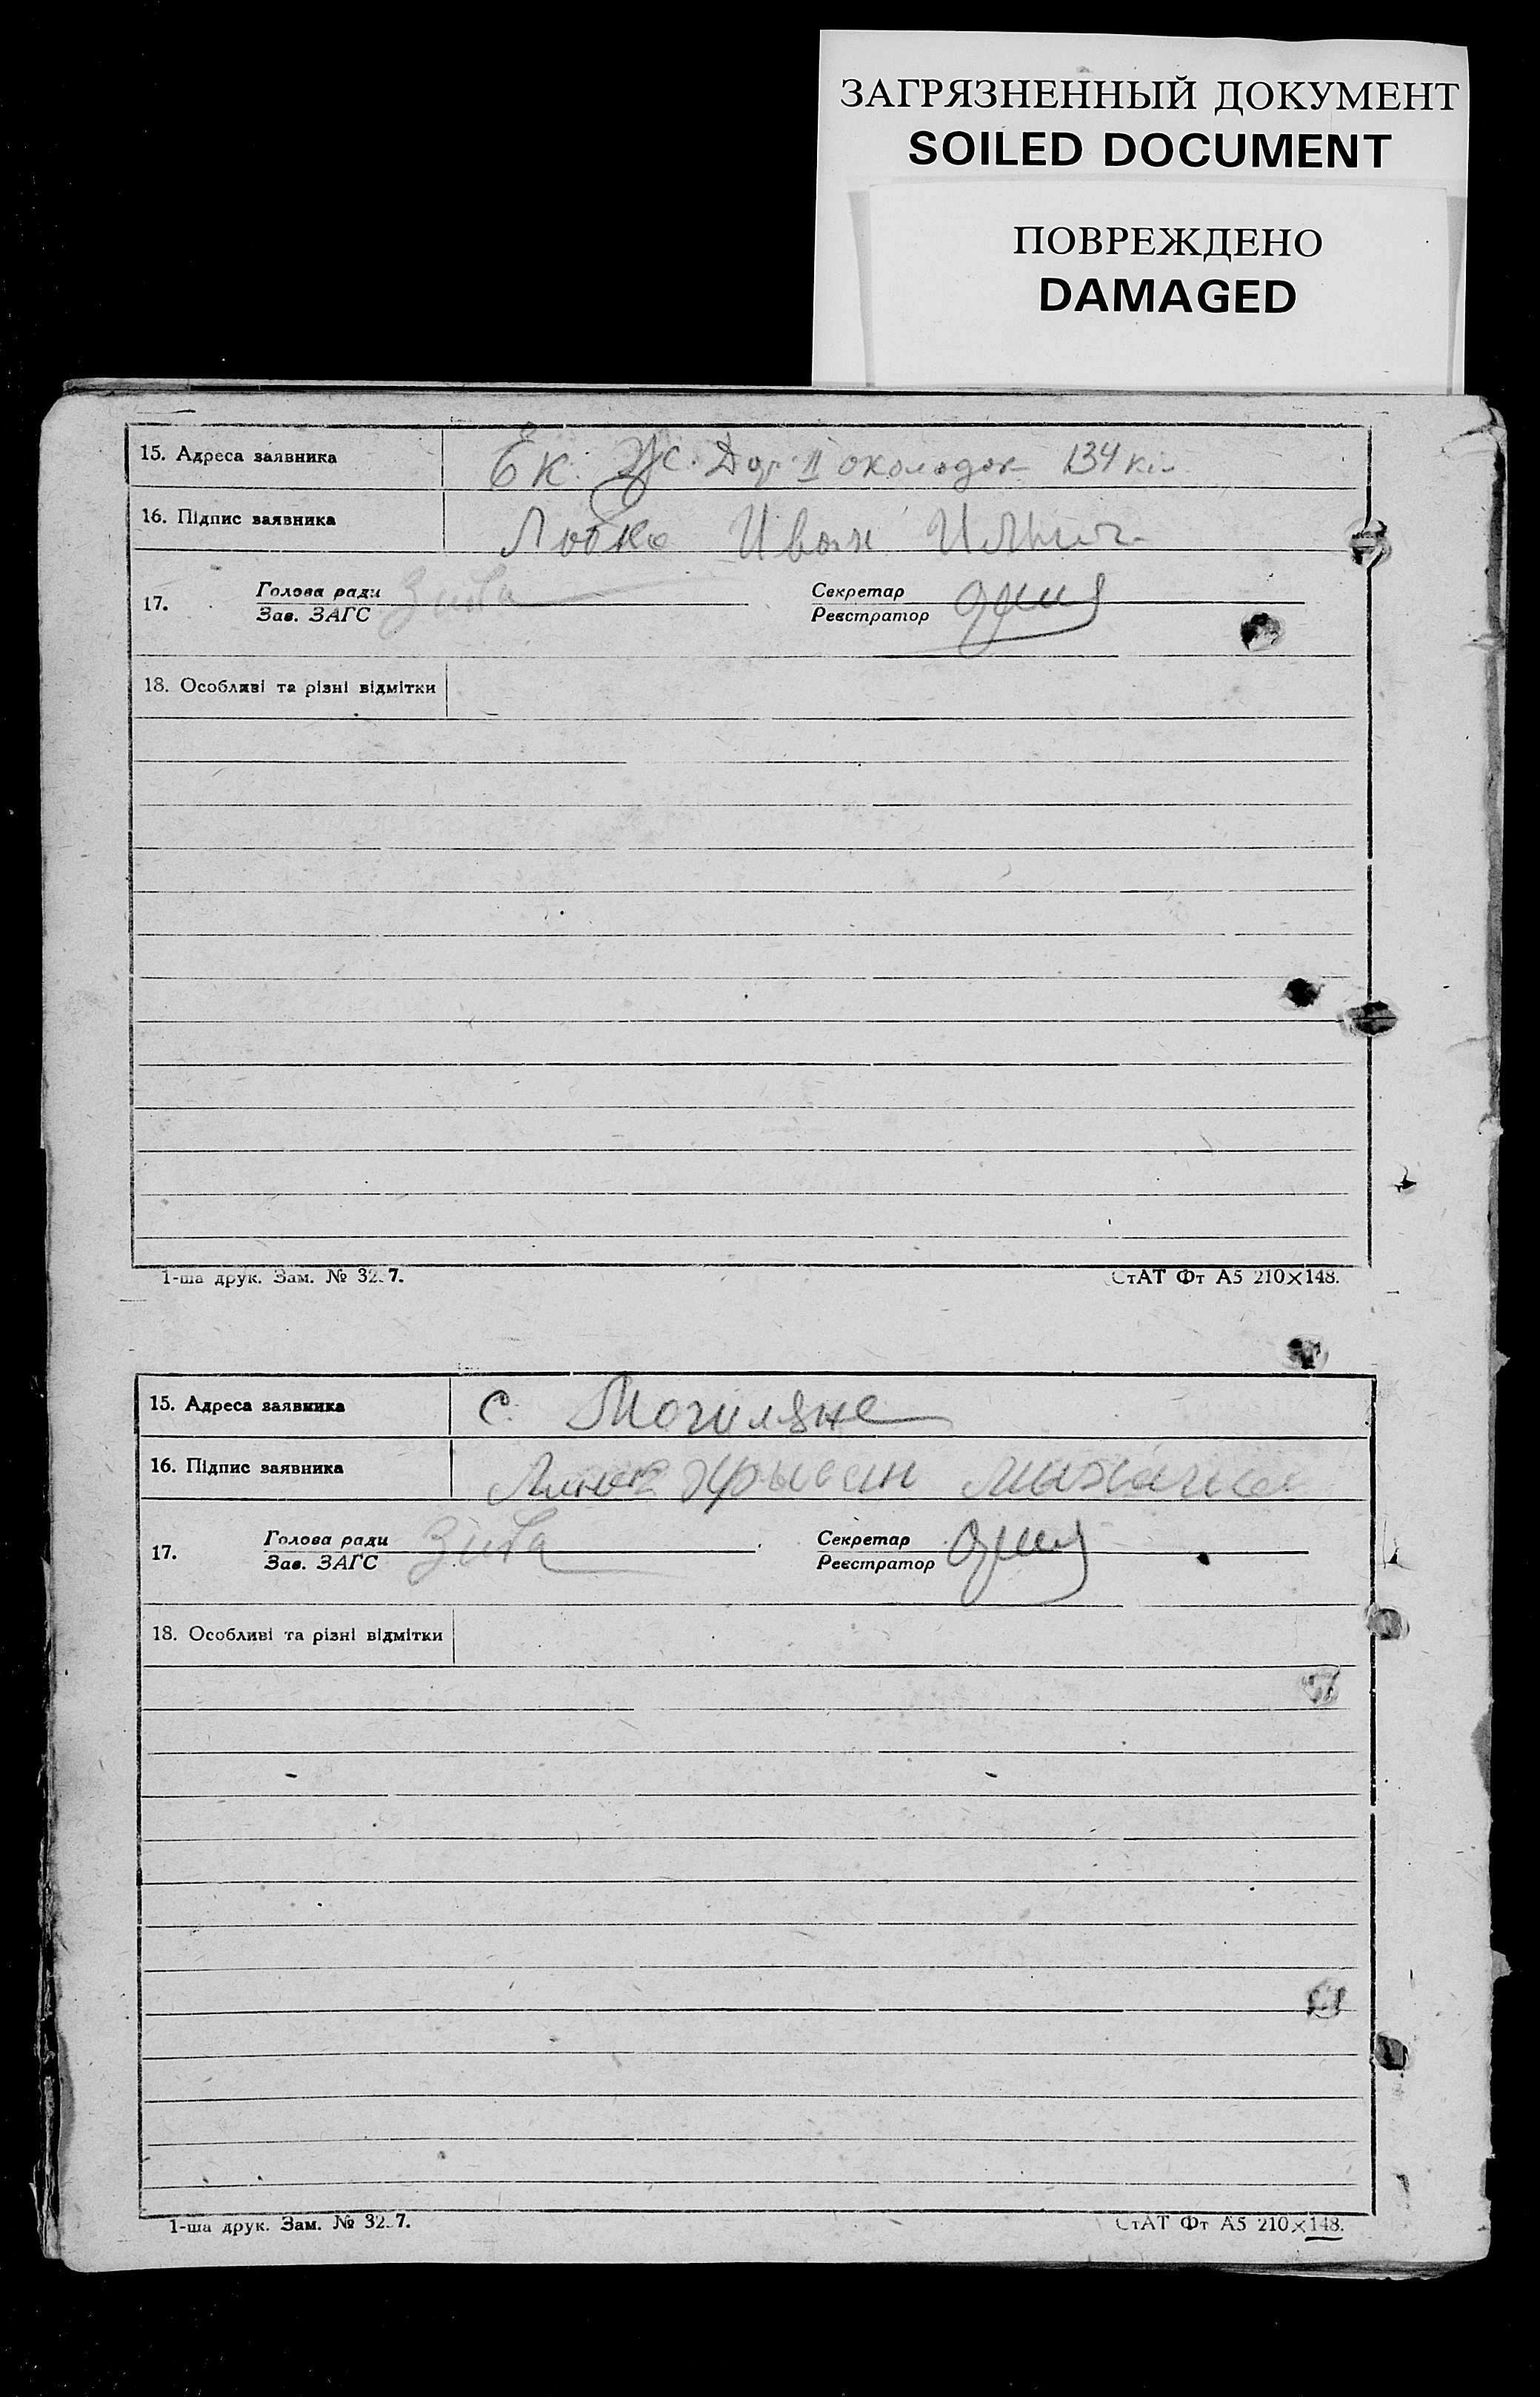 ЗАГРЯЗНЕННЫЙ ДОКУМЕНТ
SOILED DOCUMENT
ПОВРЕЖДЕНО
DAMAGED
15. Адреса заявника Ек. Ж. Дор. II околодок 134 кіл
16. Підпис заявника Иван
17. Голова ради Зива Секретар
Зав. ЗАГС Реєстратор
18. Особливі та різні відмітки
1-ша друк. Зам. № 32 7.
СтАТ Фт А5 210×148.
15. Адреса заявника с. Могиляне
16. Підпис заявника
17. Голова ради Зива Секретар
Зав. ЗАГС Реєстратор
18. Особливі та різні відмітки
1-ша друк. Зам. № 32 7.
СтАТ Фт А5 210×148.